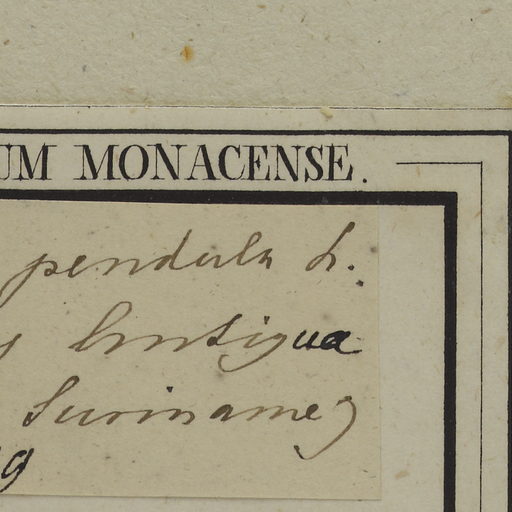 UM MONACENSE.
pendula L.
y Antigua
Suriname)
9